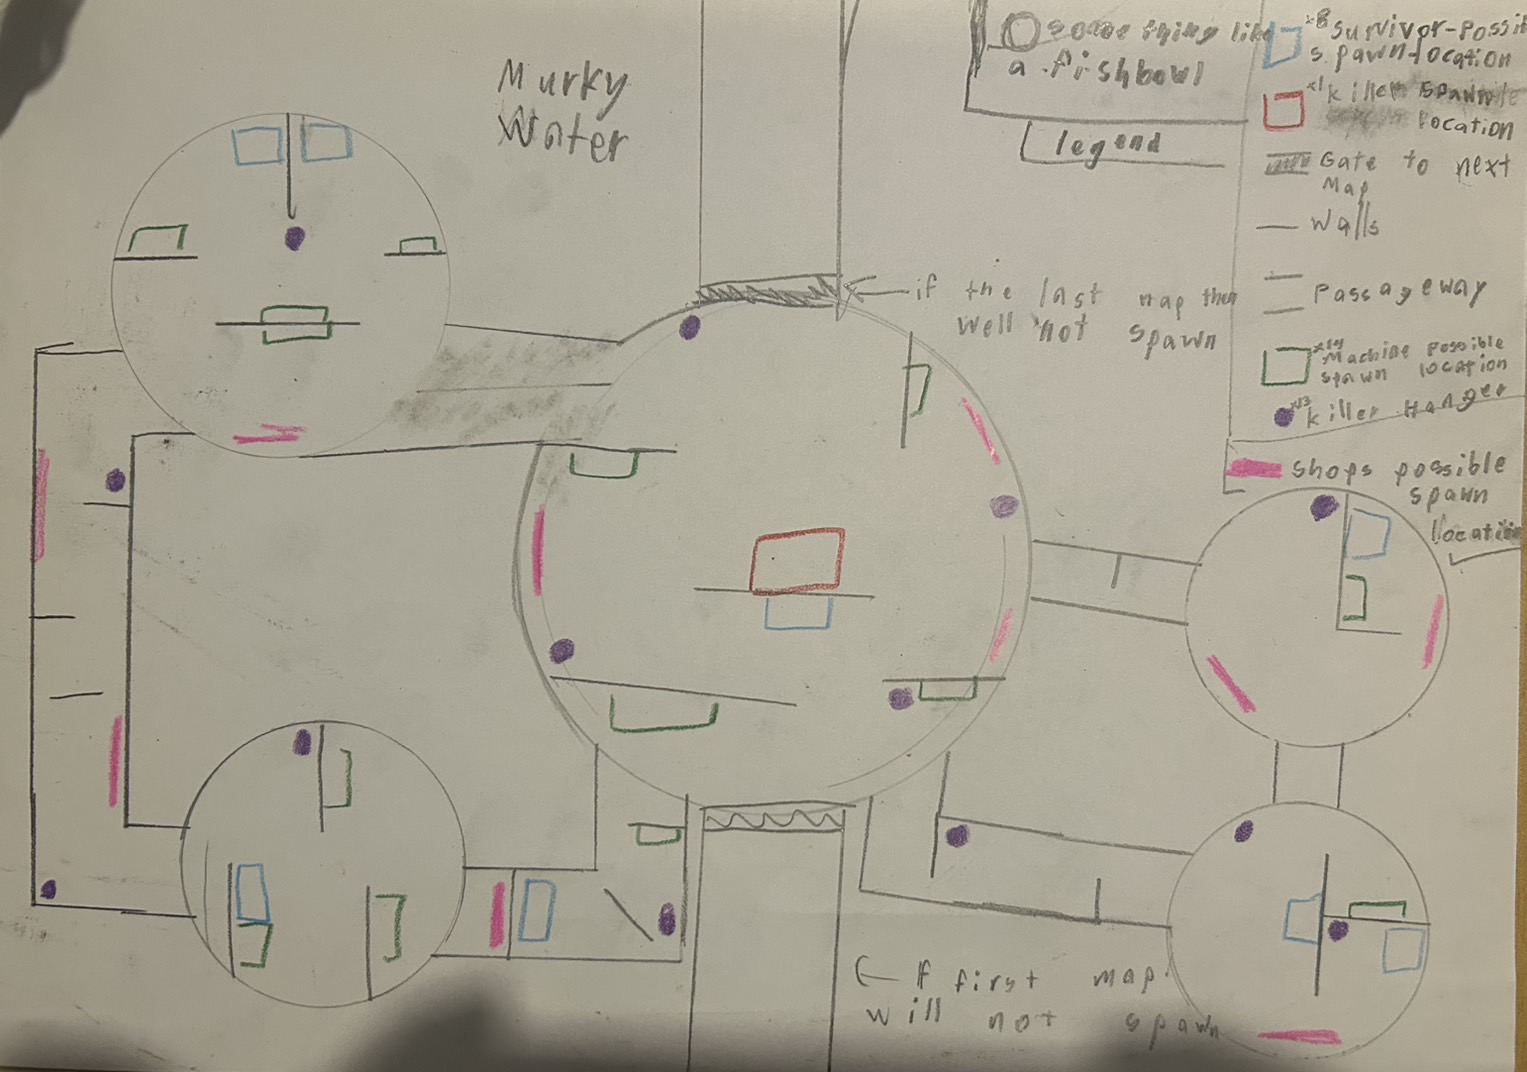 Murky
Water
some thing like
a fishbowl
legend
x8 survivor-possi
spawn-location
x1 killer spawn
location
Gate to next
Map
Walls
Passageway
Machine possible
spawn location
x13 killer Hanger
shops possible
spawn
location
if the last map then
well not spawn
If first map
will not spawn